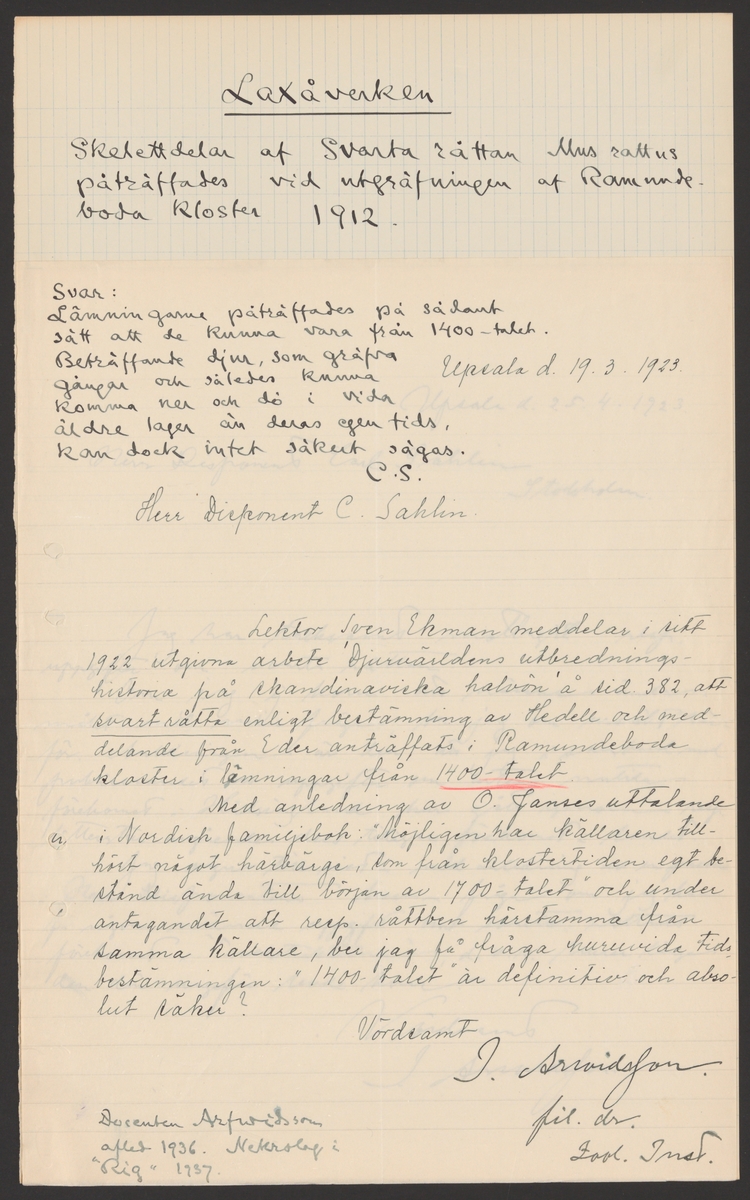 Laxåverken
Skelettdelar af Svarta råttan Mus rattus
påträffades vid utgräfningen af Ramunde-
boda kloster 1912.
Svar:
Lämningarna påträffades på sådant
sätt att de kunna vara från 1400-talet.
Beträffande djur, som gräfva
gångar och således kunna
komma ner och dö i vida
äldre lager än deras egen tids,
kan dock intet säkert sägas.
C.S.
Upsala d. 19. 3. 1923.
Herr Disponent C. Sahlin.
Lektor Sven Ekman meddelar i sitt
1922 utgivna arbete "Djurvärldens utbrednings-
historia på skandinaviska halvön" å sid. 382, att
svart råtta enligt bestämning av Hedell och med-
delande från Eder anträffats i Ramundeboda
kloster i lämningar från 1400-talet.
Med anledning av O. Janses uttalande
i Nordisk familjebok: "Möjligen har källaren till-
hört något härbärge, som från klostertiden egt be-
stånd ända till början av 1700-talet" och under
antagandet att resp. råttben härstamma från
samma källare, ber jag få fråga huruvida tids-
bestämningen: "1400-talet" är definitiv och abso-
lut säker?
Vördsamt
I. Arwidsson.
fil. dr.
Zool. Inst.
Docenten Arfwidsson
afled 1936. Nekrolog i
"Rig" 1937.